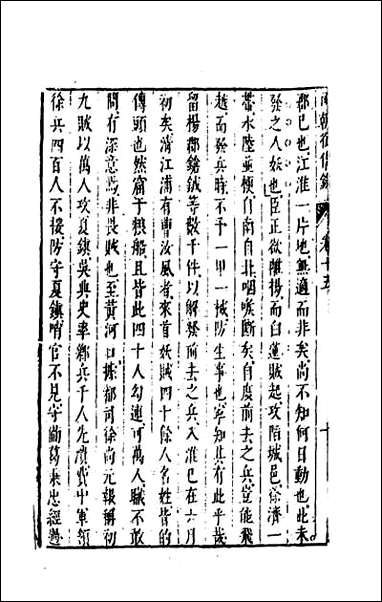 郡已也江淮一片地無適而非矣尚不知何日動也此未
發之人妖也臣正欲離揚而白蓮賊起攻陷城邑徐濟一
帶水陸並梗自南自北咽喉斷矣自度前去之兵豈能飛
越而發兵時不予一甲一械防生事也寧知其有此乎裁
留楊郡鎗銃等數千件以解發前去之兵入淮已在六月
初矣清江浦有曹汝風者來投妖賊四十餘人名姓皆的
傳頭也然窟于粮船且皆此四十人勾連可萬人職不敢
問有深意焉非畏賊也至黃河口據郁司徐尚元報稱初
九賊以萬人攻夏鎮吳典史率鄉兵千人先潰費中軍領
徐兵四百人不接防守夏鎮哨官不見守勦葛來忠經過